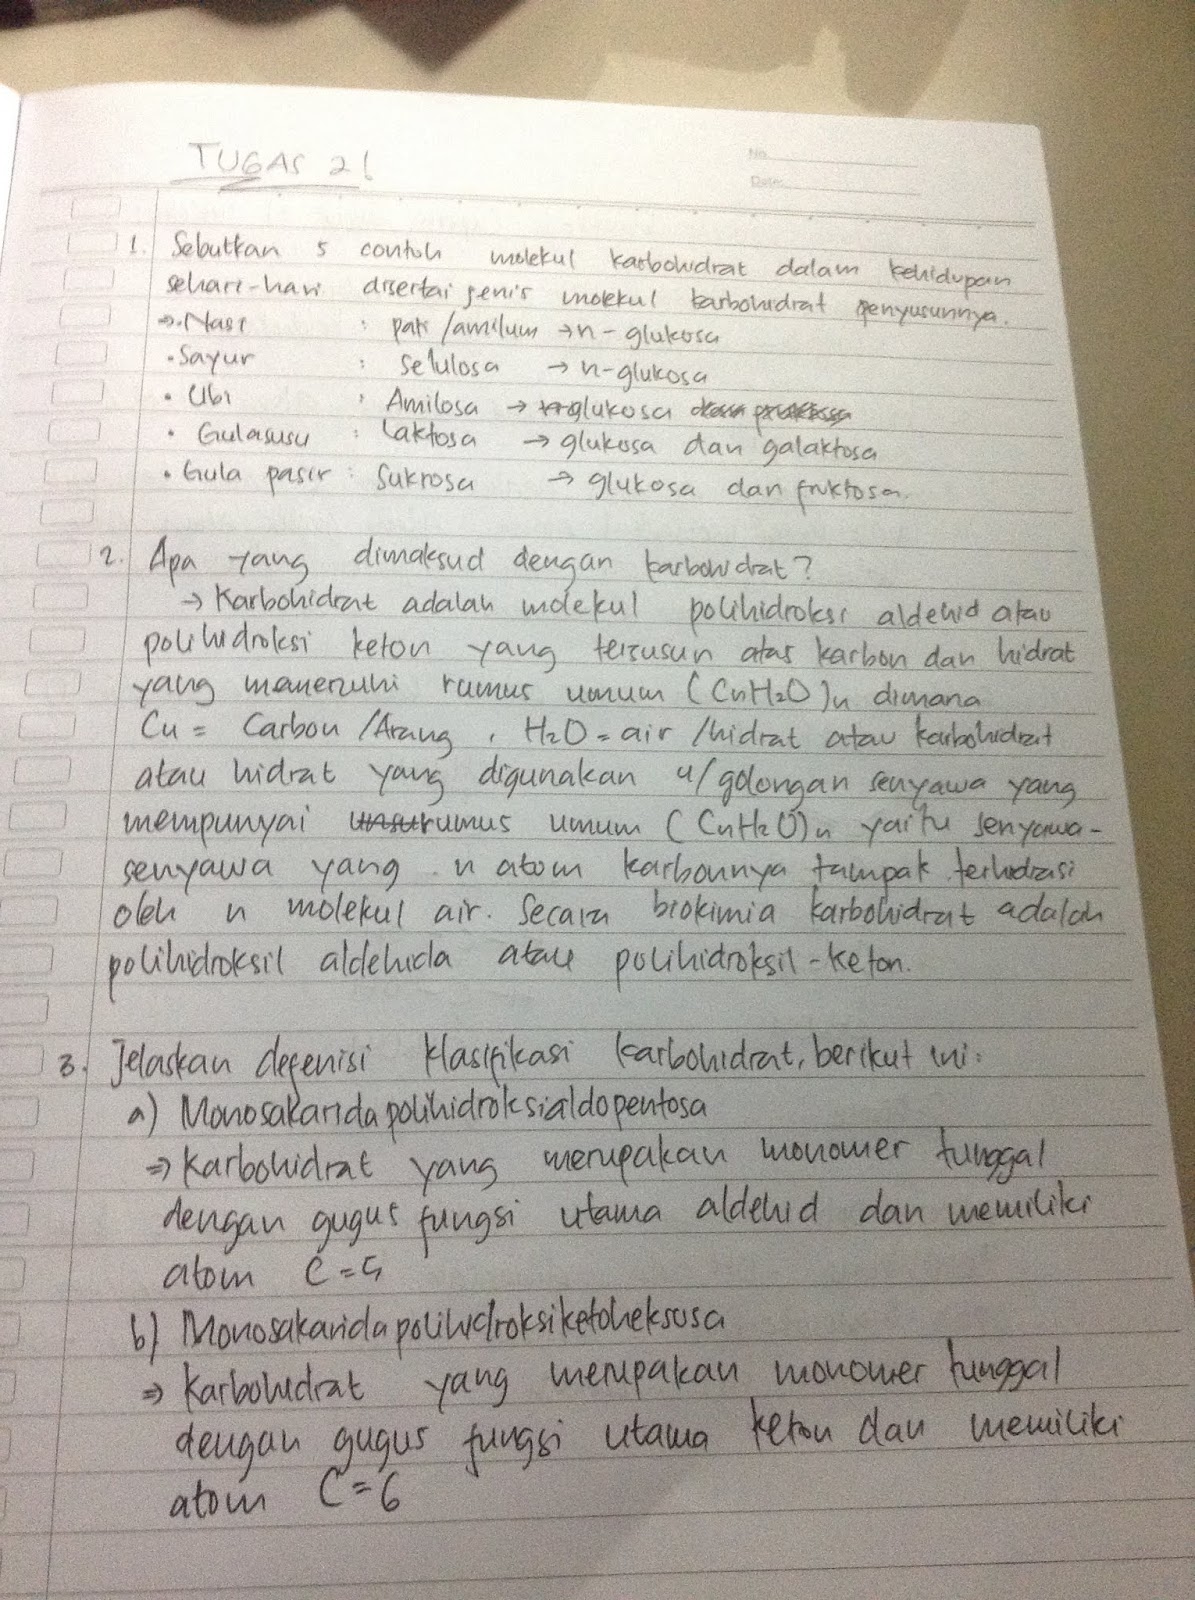 TUGAS 2!
No.
Date:
1. Sebutkan 5 contoh molekul karbohidrat dalam kehidupan
sehari-hari disertai jenis molekul karbohidrat penyusunnya.
→ • Nasi : pati /amilum → n-glukosa
• Sayur : selulosa → n-glukosa
• Ubi : Amilosa → glukosa
• Gulasusu : laktosa → glukosa dan galaktosa
• Gula pasir : Sukrosa → glukosa dan fruktosa.
2. Apa yang dimaksud dengan karbohidrat?
→ Karbohidrat adalah molekul polihidroksi aldehid atau
polihidroksi keton yang tersusun atas karbon dan hidrat
yang memenuhi rumus umum (CnH2O)n dimana
Cn = Carbon /Arang, H2O = air /hidrat atau karbohidrat
atau hidrat yang digunakan u/ golongan senyawa yang
mempunyai unsu rumus umum (CnH2O)n yaitu senyawa-
senyawa yang n atom karbonnya tampak terhidrasi
oleh n molekul air. Secara biokimia karbohidrat adalah
polihidroksil aldehida atau polihidroksil-keton.
3. Jelaskan defenisi klasifikasi karbohidrat, berikut ini:
a) Monosakarida polihidroksialdopentosa
⇒ Karbohidrat yang merupakan monomer tunggal
dengan gugus fungsi utama aldehid dan memiliki
atom C=5
b) Monosakarida polihidroksiketoheksosa
⇒ Karbohidrat yang merupakan monomer tunggal
dengan gugus fungsi utama keton dan memiliki
atom C=6